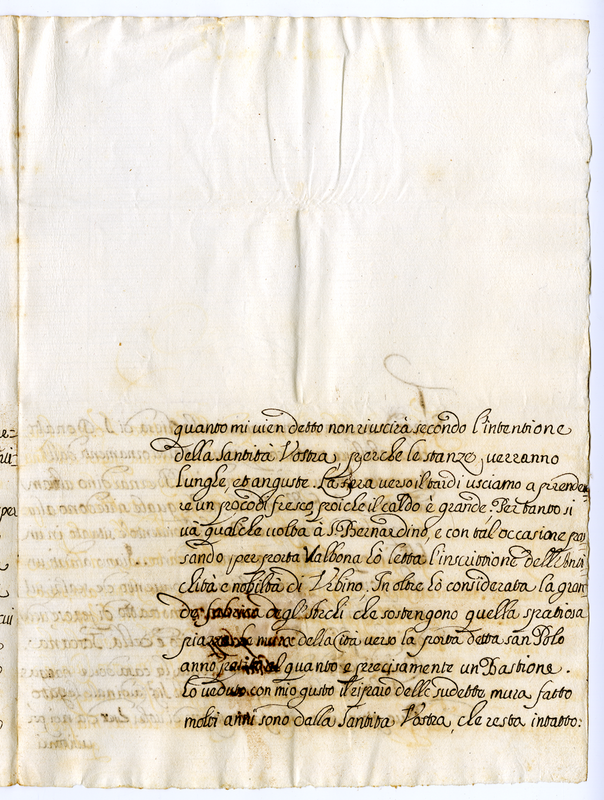 quanto mi vien detto non riuscirà secondo l'intentione
della Santità Vostra, perche le stanze, verranno
lunghe, et anguste. La sera verso il tardi usciamo a prende
re un poco di fresco, poiche il caldo è grande. Per tanto si
và qualche volta à S. Bernardino, e con tàl occasione pas
sando per porta Valbona hò letta l'inscrittione dell'Anti
chità e nobiltà di Urbino. In oltre hò considerata la gran
de fabrica degli Archi che sostengono quella spatiosa
piazza le mura della Città verso la porta detta san Polo
anno patito al quanto e precisamente un Bastione.
hò veduto con mio gusto il riparo delle sudette mura fatto
molti anni sono dalla Santità Vostra, che resta intatto: